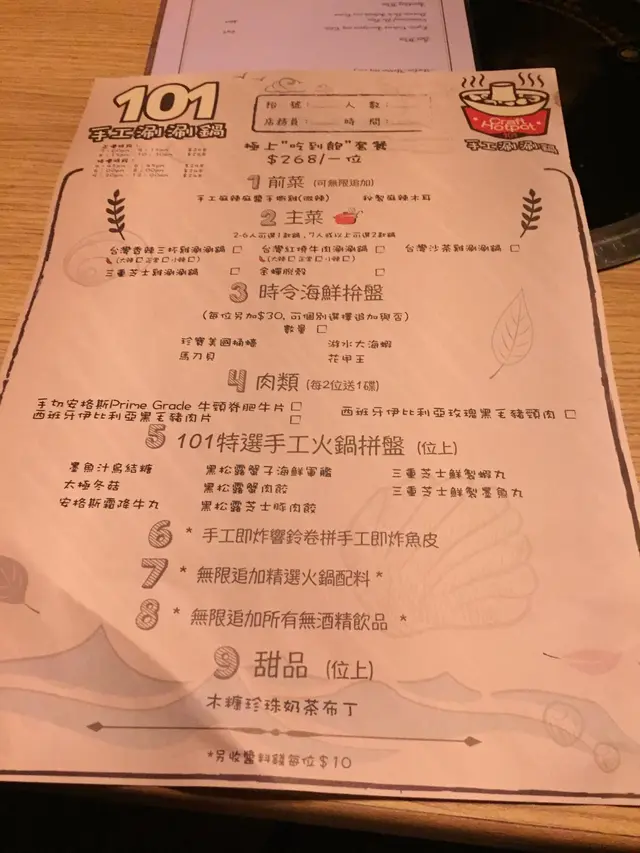 101
手工涮涮鍋
枱號： 人數：
店務員： 時間：
Craft
HotPot
手工涮涮鍋
極上"吃到飽"套餐
$268/一位
1 前菜 (可無限追加)
手工麻辣麻醬手撕雞(微辣) 秘製麻辣木耳
2 主菜
2-6人可選1款鍋，7人或以上可選2款鍋
台灣香辣三杯雞涮涮鍋 台灣紅燒牛肉涮涮鍋 台灣沙茶雞涮涮鍋
(大辣 正常 小辣) (大辣 正常 小辣)
三重芝士雞涮涮鍋 金蟬脫殼
3 時令海鮮拚盤
(每位另加$30, 可個別選擇追加與否)
數量
珍寶美國桶蠔 游水大海蝦
馬刀貝 花甲王
4 肉類 (每2位送1碟)
手切安格斯Prime Grade 牛頸脊肥牛片
西班牙伊比利亞黑毛豬肉片 西班牙伊比利亞玫瑰黑毛豬頸肉
5 101特選手工火鍋拼盤 (位上)
墨魚汁烏結糖 黑松露蟹子海鮮軍艦 三重芝士鮮製蝦丸
太極冬菇 黑松露蟹肉餃 三重芝士鮮製墨魚丸
安格斯霜降牛丸 黑松露芝士豚肉餃
6 * 手工即炸響鈴卷拼手工即炸魚皮
7 * 無限追加精選火鍋配料 *
8 * 無限追加所有無酒精飲品 *
9 甜品 (位上)
木糖珍珠奶茶布丁
*另收醬料錢每位$10